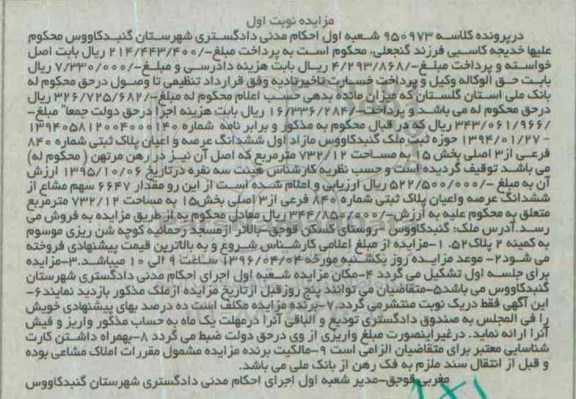 مزایده نوبت اول
درپرونده کلاسه ۹۵۰۹۷۳ شعبه اول احکام مدنی دادگستری شهرستان گنبدکاووس محکوم
علیها خدیجه کاسبی فرزند گنجعلی، محکوم است به پرداخت مبلغ-/۲۱۴/۴۴۳/۴۰۰ ریال بابت اصل
خواسته و پرداخت مبلغ-/۴/۲۹۳/۸۶۸ ریال بابت هزینه دادرسی و مبلغ-/۷/۳۳۰/۰۰۰ ریال
بابت حق الوکاله وکیل و پرداخت خسارت تاخیرتادیه وفق قرارداد تنظیمی تا وصول درحق محکوم له
بانک ملی استان گلستان که میزان مانده بدهی حسب اعلام محکوم له مبلغ-/۳۲۶/۷۲۵/۶۸۲ ریال
درحق محکوم له می باشد و پرداخت-/۱۶/۳۳۶/۲۸۴ ریال بابت هزینه اجرا درحق دولت جمعا" مبلغ-
/۳۴۳/۰۶۱/۹۶۶ ریال که در قبال محکوم به مذکور و برابر نامه شماره ۱۳۹۴۰۵۸۱۲۰۰۴۰۰۰۱۴۰
-۱۳۹۴/۰۱/۲۷ حوزه ثبت ملک گنبدکاووس مازاد اول ششدانگ عرصه و اعیان پلاک ثبتی شماره ۸۴۰
فرعی از۳ اصلی بخش ۱۵ به مساحت ۷۳۲/۱۲ مترمربع که اصل آن نیز در رهن مرتهن (محکوم له)
می باشد توقیف گردیده است و حسب نظریه کارشناس هیئت سه نفره درتاریخ ۱۳۹۵/۱۰/۰۶ ارزش
آن به مبلغ -/۵۲۲/۵۰۰/۰۰۰ ریال ارزیابی و اعلام شده است از این رو مقدار ۶۶۴۷ سهم مشاع از
ششدانگ عرصه واعیان پلاک ثبتی شماره ۸۴۰ فرعی از۳ اصلی بخش۱۵ به مساحت ۷۳۲/۱۲ مترمربع
متعلق به محکوم علیه به ارزش-/۳۴۴/۸۵۰/۰۰۰ ریال معادل محکوم به از طریق مزایده به فروش می
رسد.آدرس ملک: گنبدکاووس -روستای کسکن قوجق-بالاتر ازمسجد رحمانیه کوچه شن ریزی موسوم
به کمینه ۲ پلاک۵۲. ۱-مزایده از مبلغ اعلامی کارشناس شروع و به بالاترین قیمت پیشنهادی فروخته
می شود۲- موعد مزایده روز یکشنبه مورخه ۱۳۹۶/۰۴/۰۴ ساعت ۹ الی ۱۰ میباشد.۳-مزایده
برای جلسه اول تشکیل می گردد ۴-مکان مزایده شعبه اول اجرای احکام مدنی دادگستری شهرستان
گنبدکاووس می باشد۵-متقاضیان می توانند پنج روزقبل ازتاریخ مزایده ازملک مذکور بازدید نمایند۶-
این آگهی فقط دریک نوبت منتشرمی گردد.۷-برنده مزایده مکلف است ده درصد بهای پیشنهادی خویش
را فی المجلس به صندوق دادگستری تودیع و الباقی آنرا درمهلت یک ماه به حساب مذکور واریز و فیش
آنرا ارائه نماید. درغیراینصورت مبلغ واریزی از وی درحق دولت ضبط می گردد ۸-بهمراه داشتن کارت
شناسایی معتبر برای متقاضیان الزامی است ۹-مالکیت برنده مزایده مشمول مقررات املاک مشاعی بوده
و قبل از انتقال سند ملزم به فک رهن از بانک ملی می باشد.
مغربی قوجق-مدیر شعبه اول اجرای احکام مدنی دادگستری شهرستان گنبدکاووس